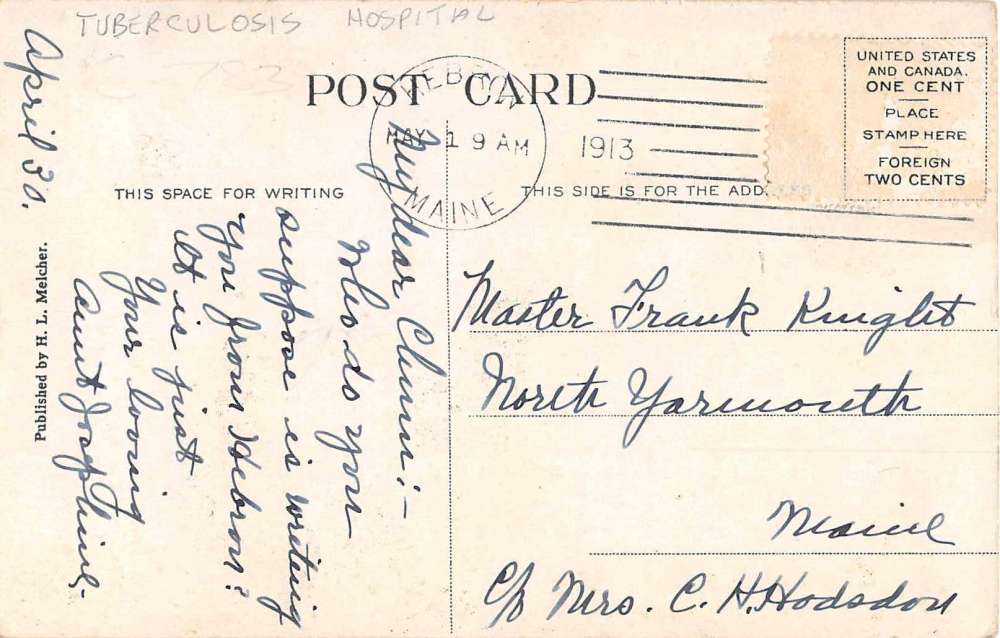 TUBERCULOSIS HOSPITAL
POST CARD
HEBRON
MAY 1 9 AM
1913
MAINE
UNITED STATES
AND CANADA.
ONE CENT
PLACE
STAMP HERE
FOREIGN
TWO CENTS
THIS SPACE FOR WRITING
THIS SIDE IS FOR THE ADDRESS
April 30.
My dear Chum:-
Who do you
suppose is writing
you from Hebron?
It is just
Your loving
Aunt Josephine.
Master Frank Knight
North Yarmouth
Maine
c/o Mrs. C. H. Hodsdon
Published by H. L. Melcher.